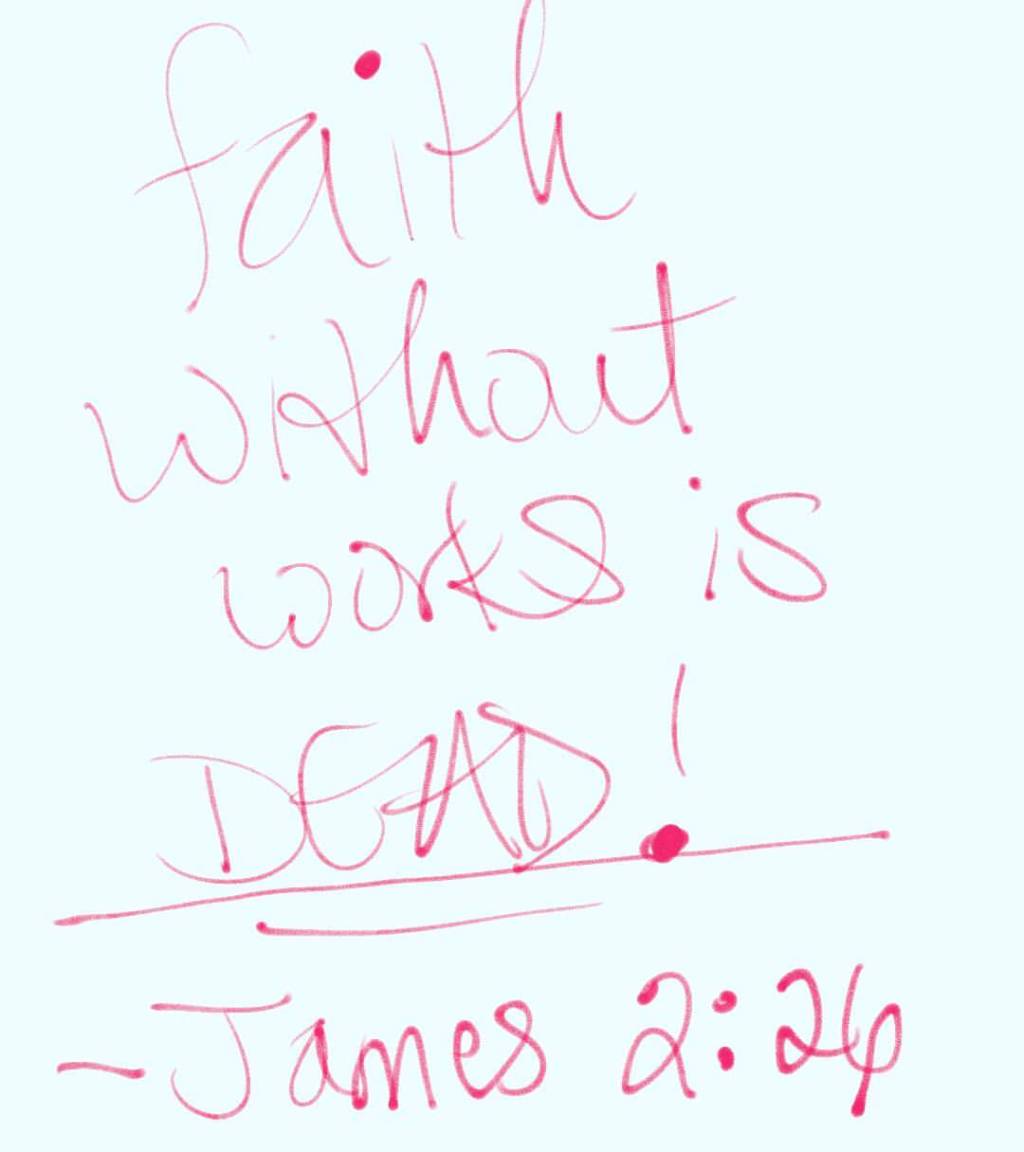 faith
without
works is
DEAD!
~James 2:26